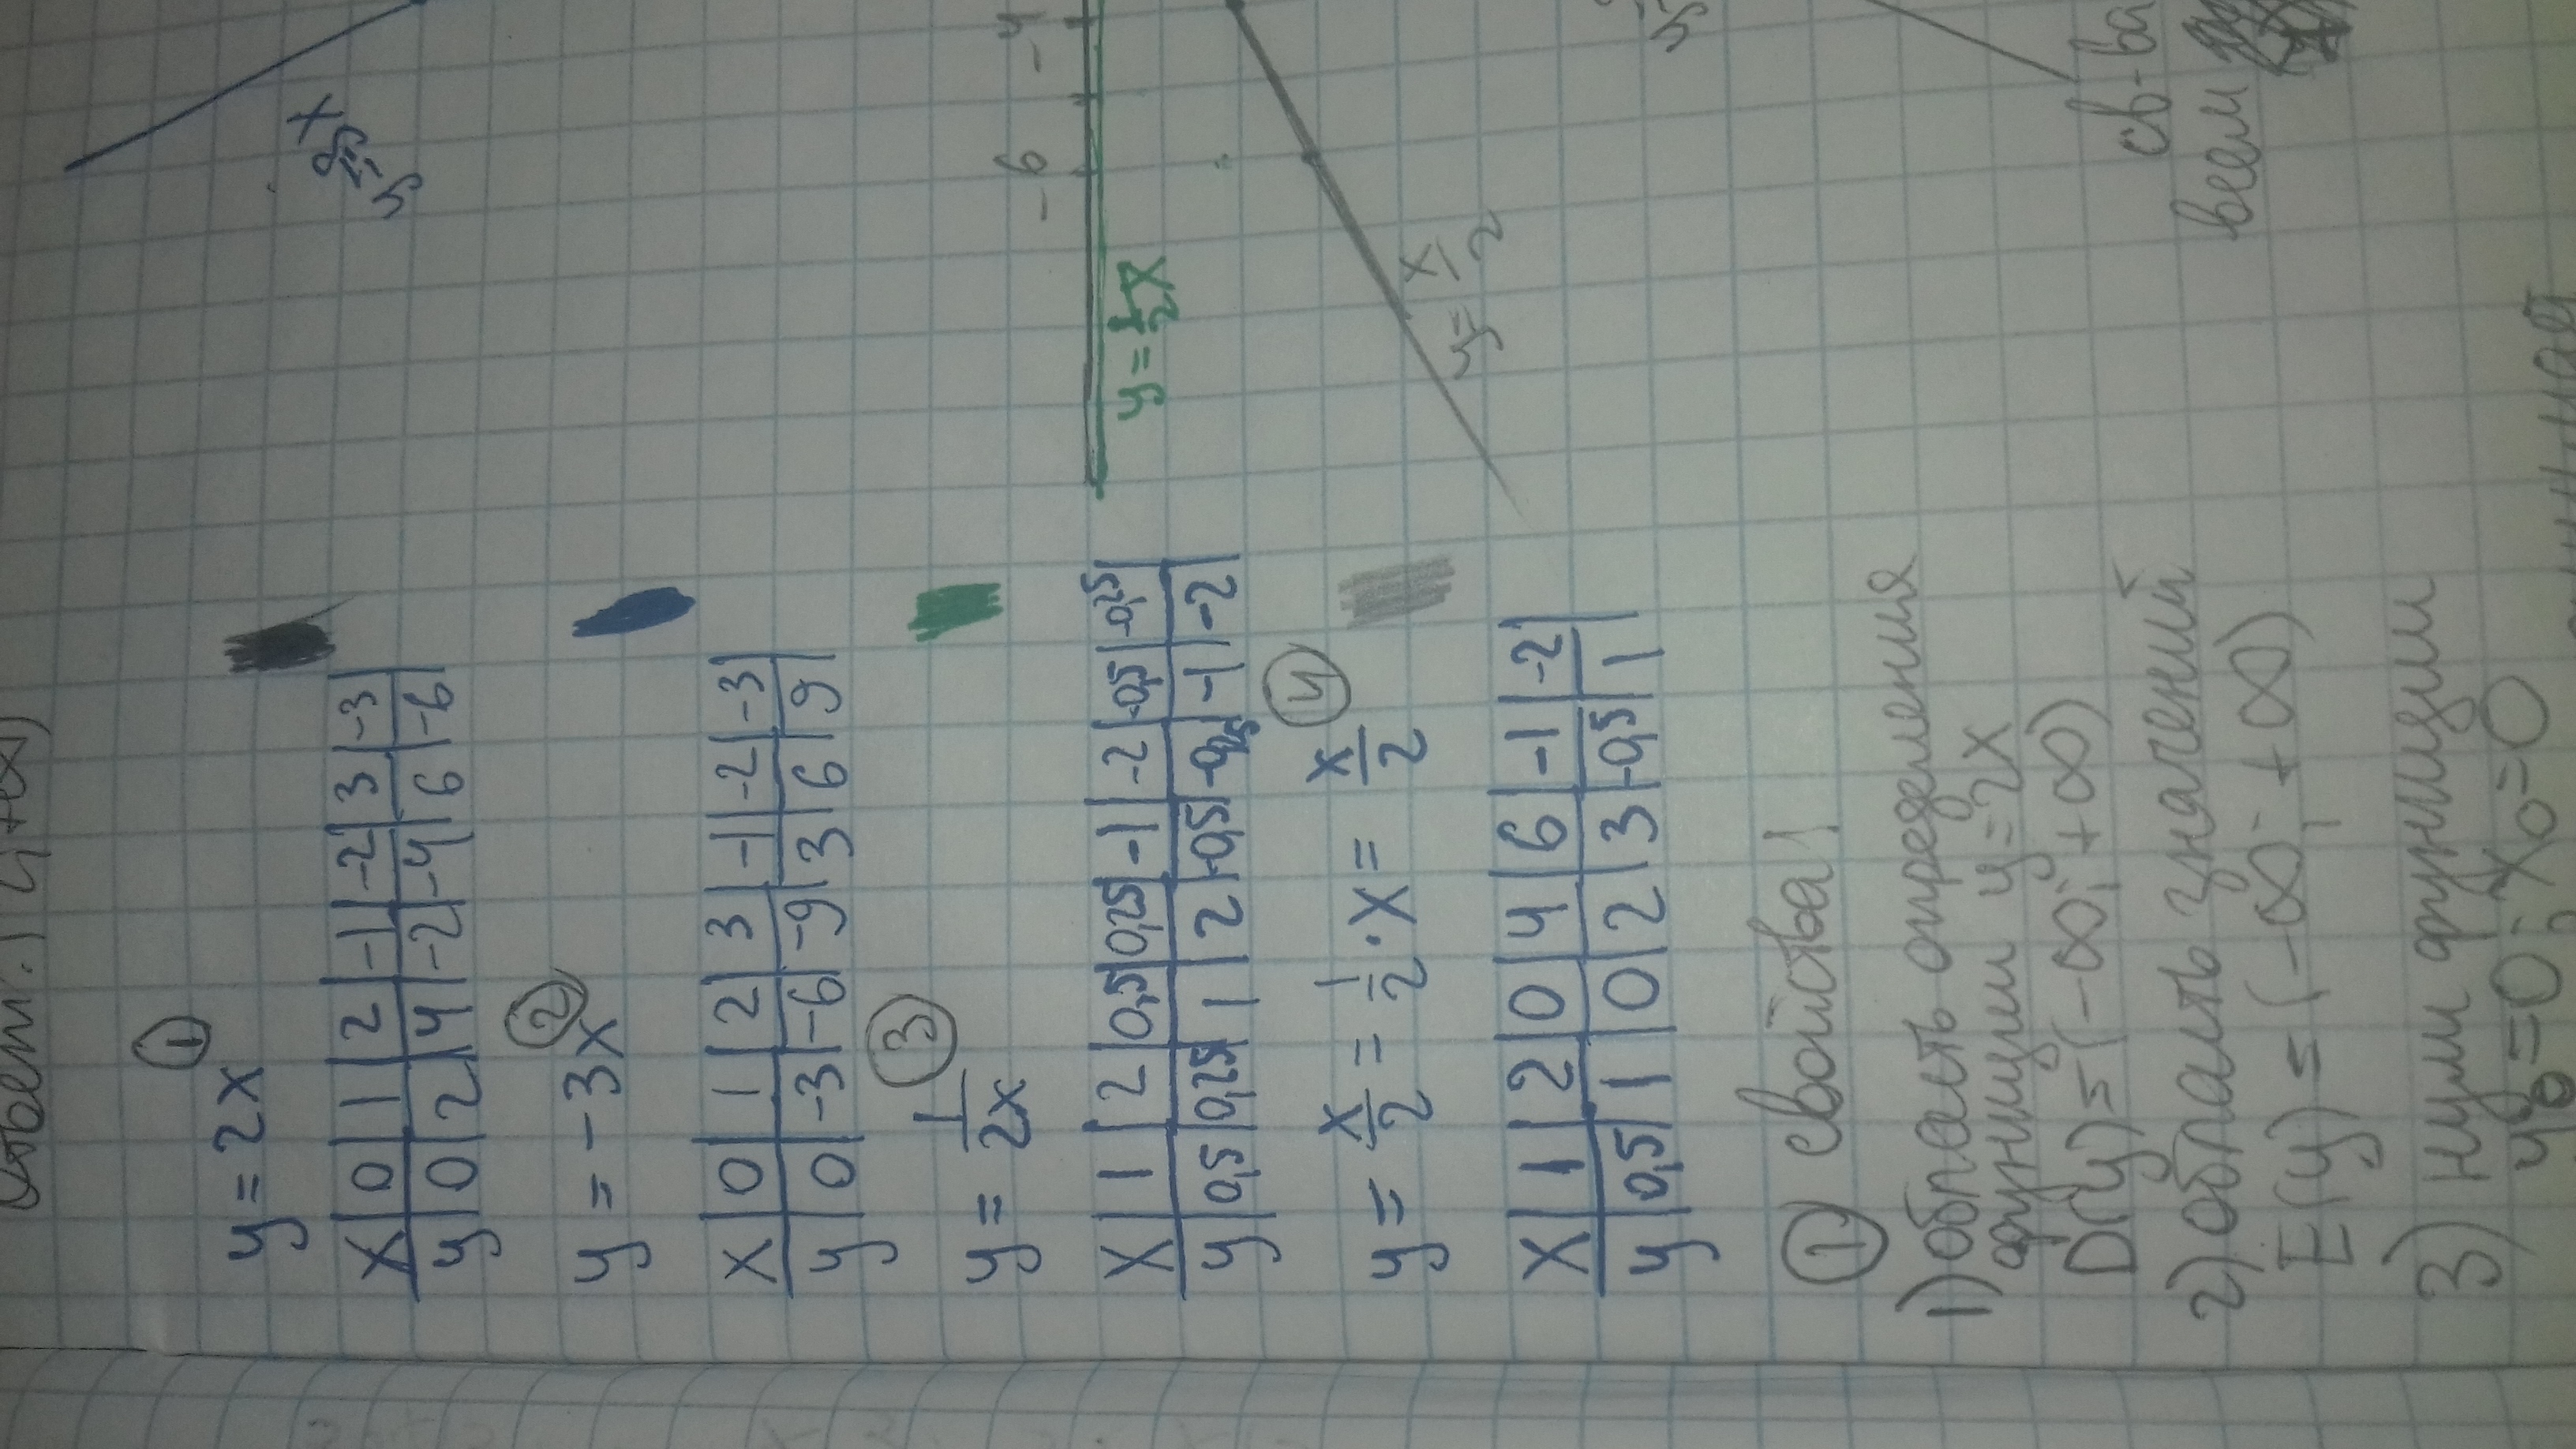 ①
y = 2x
x | 0 | 1 | 2 | -1 | -2 | 3 | -3
y | 0 | 2 | 4 | -2 | -4 | 6 | -6
②
y = -3x
x | 0 | 1 | 2 | 3 | -1 | -2 | -3
y | 0 | -3 | -6 | -9 | 3 | 6 | 9
③
y = 1/2x
x | 1 | 2 | 0,5 | 0,25 | -1 | -2 | -0,5 | -0,25
y | 0,5 | 0,25 | 1 | 2 | -0,5 | -0,25 | -1 | -2
④
y = x/2 = 1/2 · x = x/2
x | 1 | 2 | 0 | 4 | 6 | -1 | -2
y | 0,5 | 1 | 0 | 2 | 3 | -0,5 | 1
① свойства!
1) область определения
функции y=2x
D(y) = (-∞; +∞)
2) область значений
E(y) = (-∞; +∞)
3) нули функции
y₀=0; x₀=0
-6 -4
y = 1/2x
y = x/2
св-ва
всем